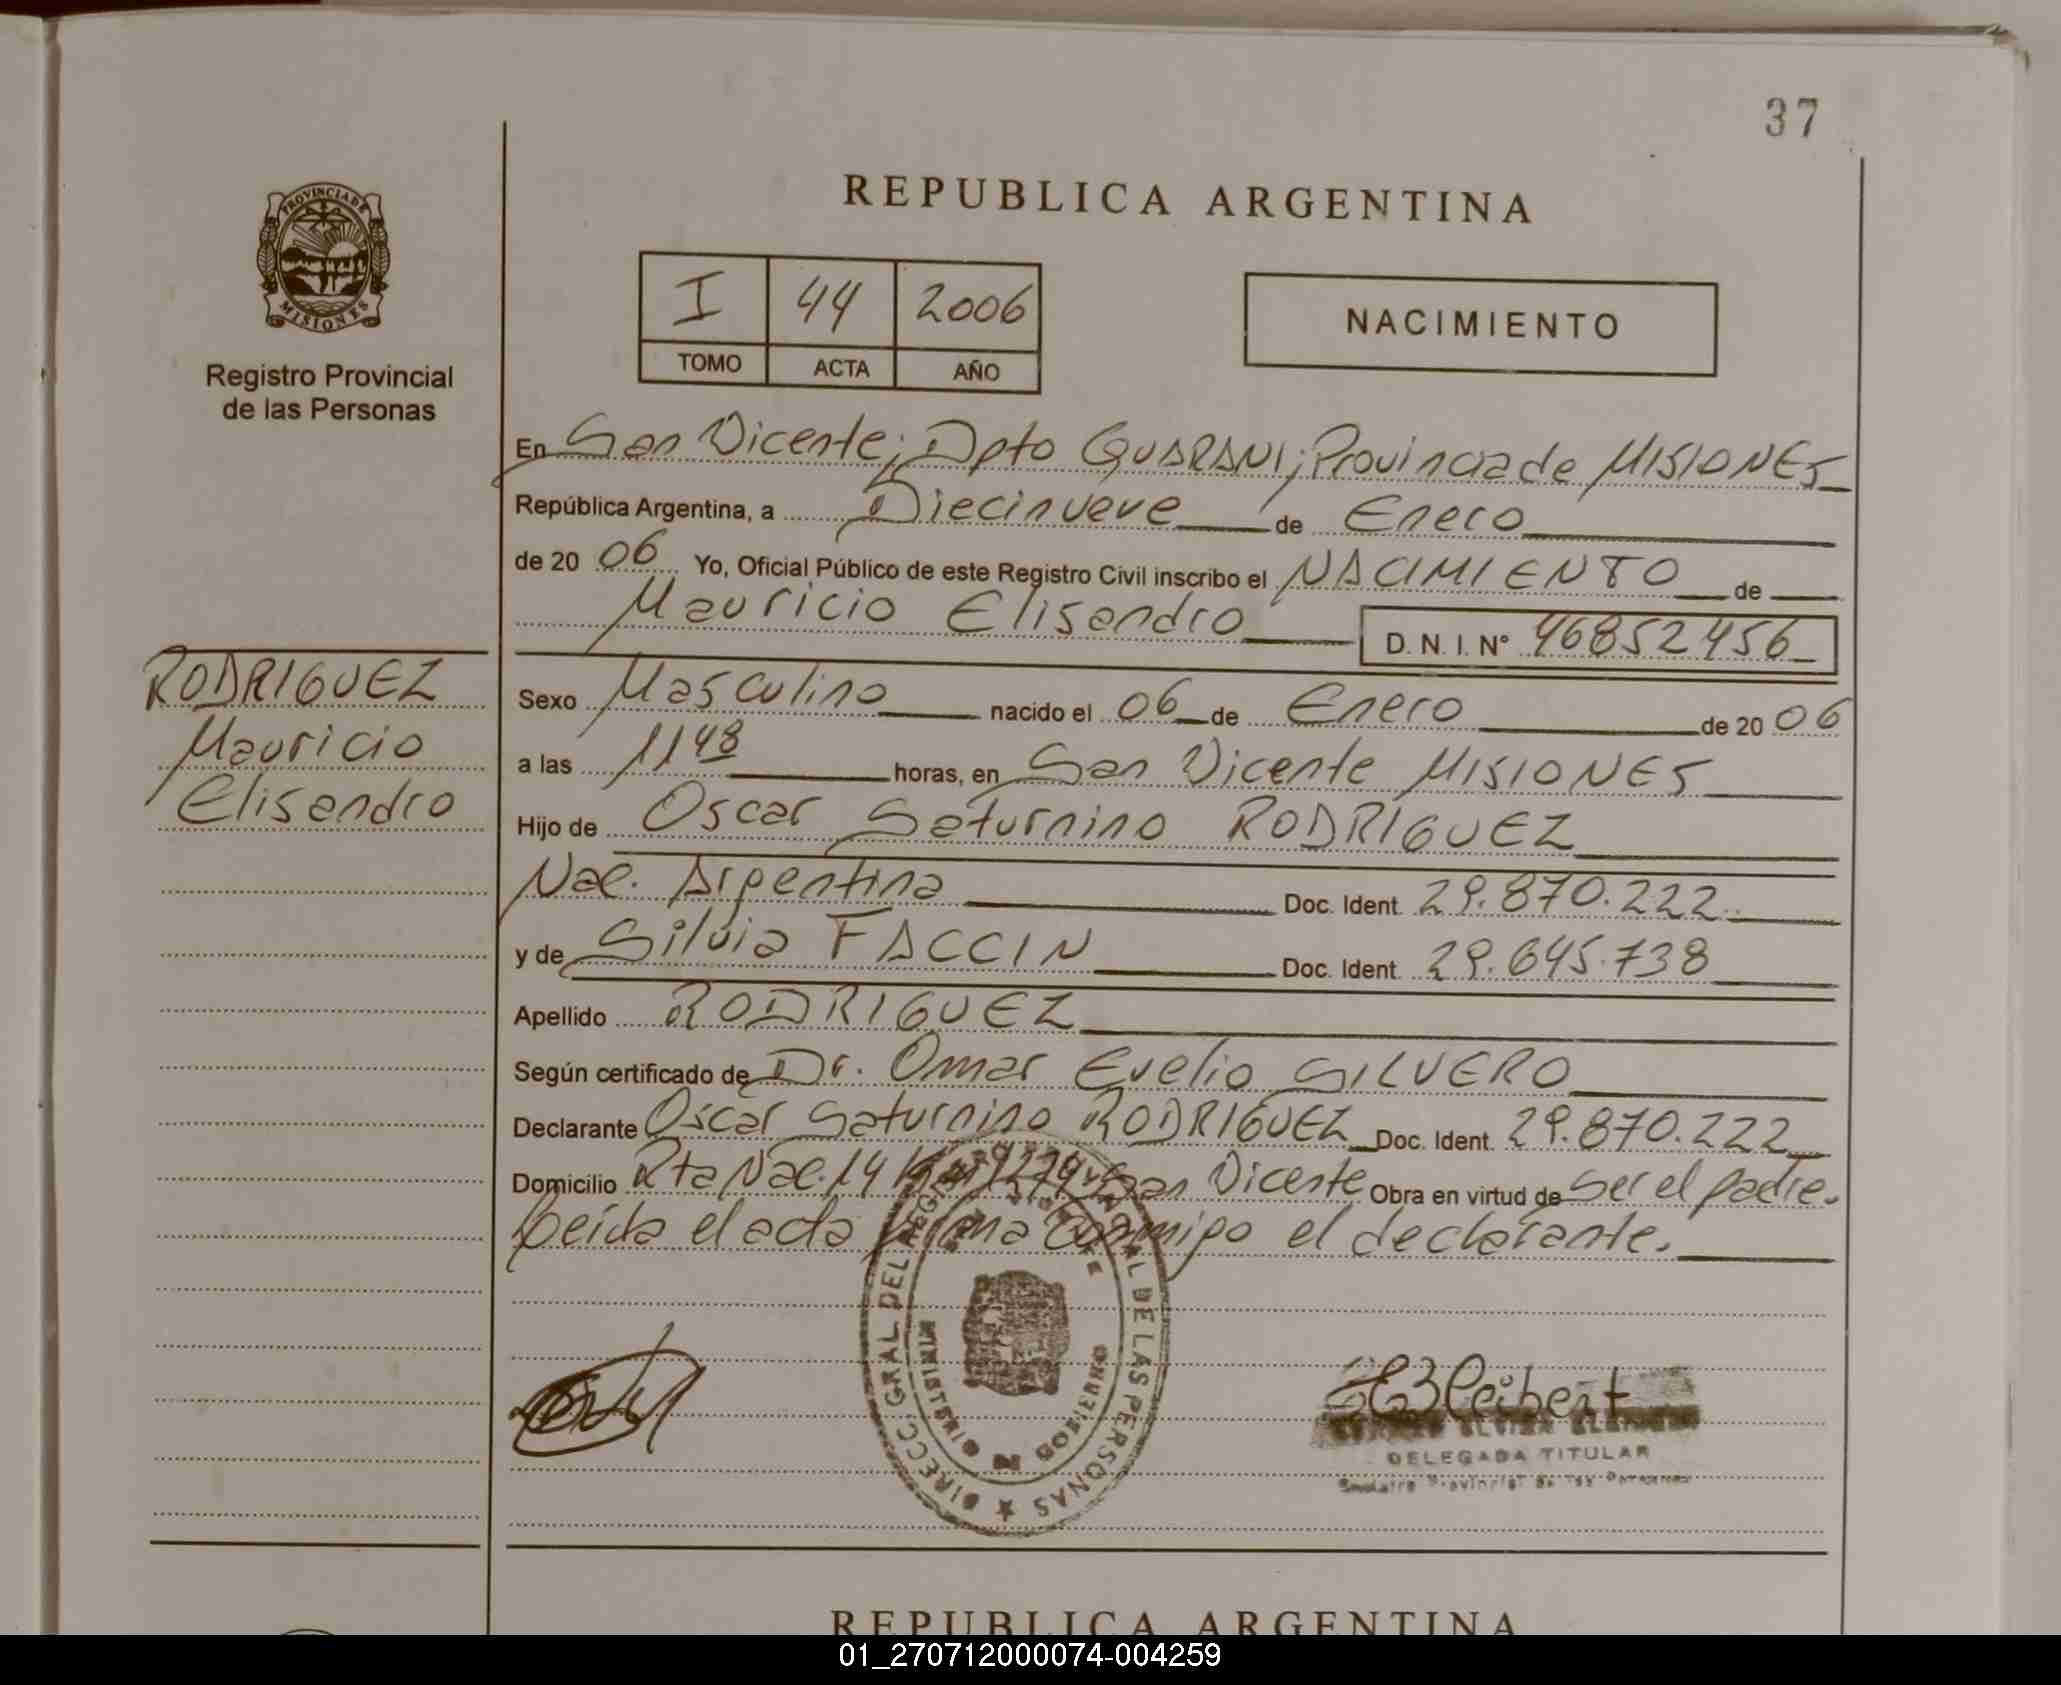 37
PROVINCIA DE
MISIONES
Registro Provincial
de las Personas
REPUBLICA ARGENTINA
I 44 2006
TOMO ACTA AÑO
NACIMIENTO
En San Vicente; Dpto GUARANI; Provincia de MISIONES
República Argentina, a Diecinueve de Enero
de 20 06 Yo, Oficial Público de este Registro Civil inscribo el NACIMIENTO de
Mauricio Elisandro D. N. I. N° 46852456
RODRIGUEZ
Mauricio
Elisandro
Sexo Masculino nacido el 06 de Enero de 20 06
a las 1148 horas, en San Vicente MISIONES
Hijo de Oscar Saturnino RODRIGUEZ
Nac. Argentina Doc. Ident. 29.870.222
y de Silvia FACCIN Doc. Ident. 29.645.738
Apellido RODRIGUEZ
Según certificado de Dr. Omar Evelio SILVERO
Declarante Oscar Saturnino RODRIGUEZ Doc. Ident. 29.870.222
Domicilio Rta Nac. 14 San Vicente Obra en virtud de ser el padre.
Leída el acta firma conmigo el declarante.
DIRECC. GRAL DEL REGISTRO PROVINCIAL DE LAS PERSONAS
MINISTERIO DE GOBIERNO
DELEGADA TITULAR
REPUBLICA ARGENTINA
01_270712000074-004259